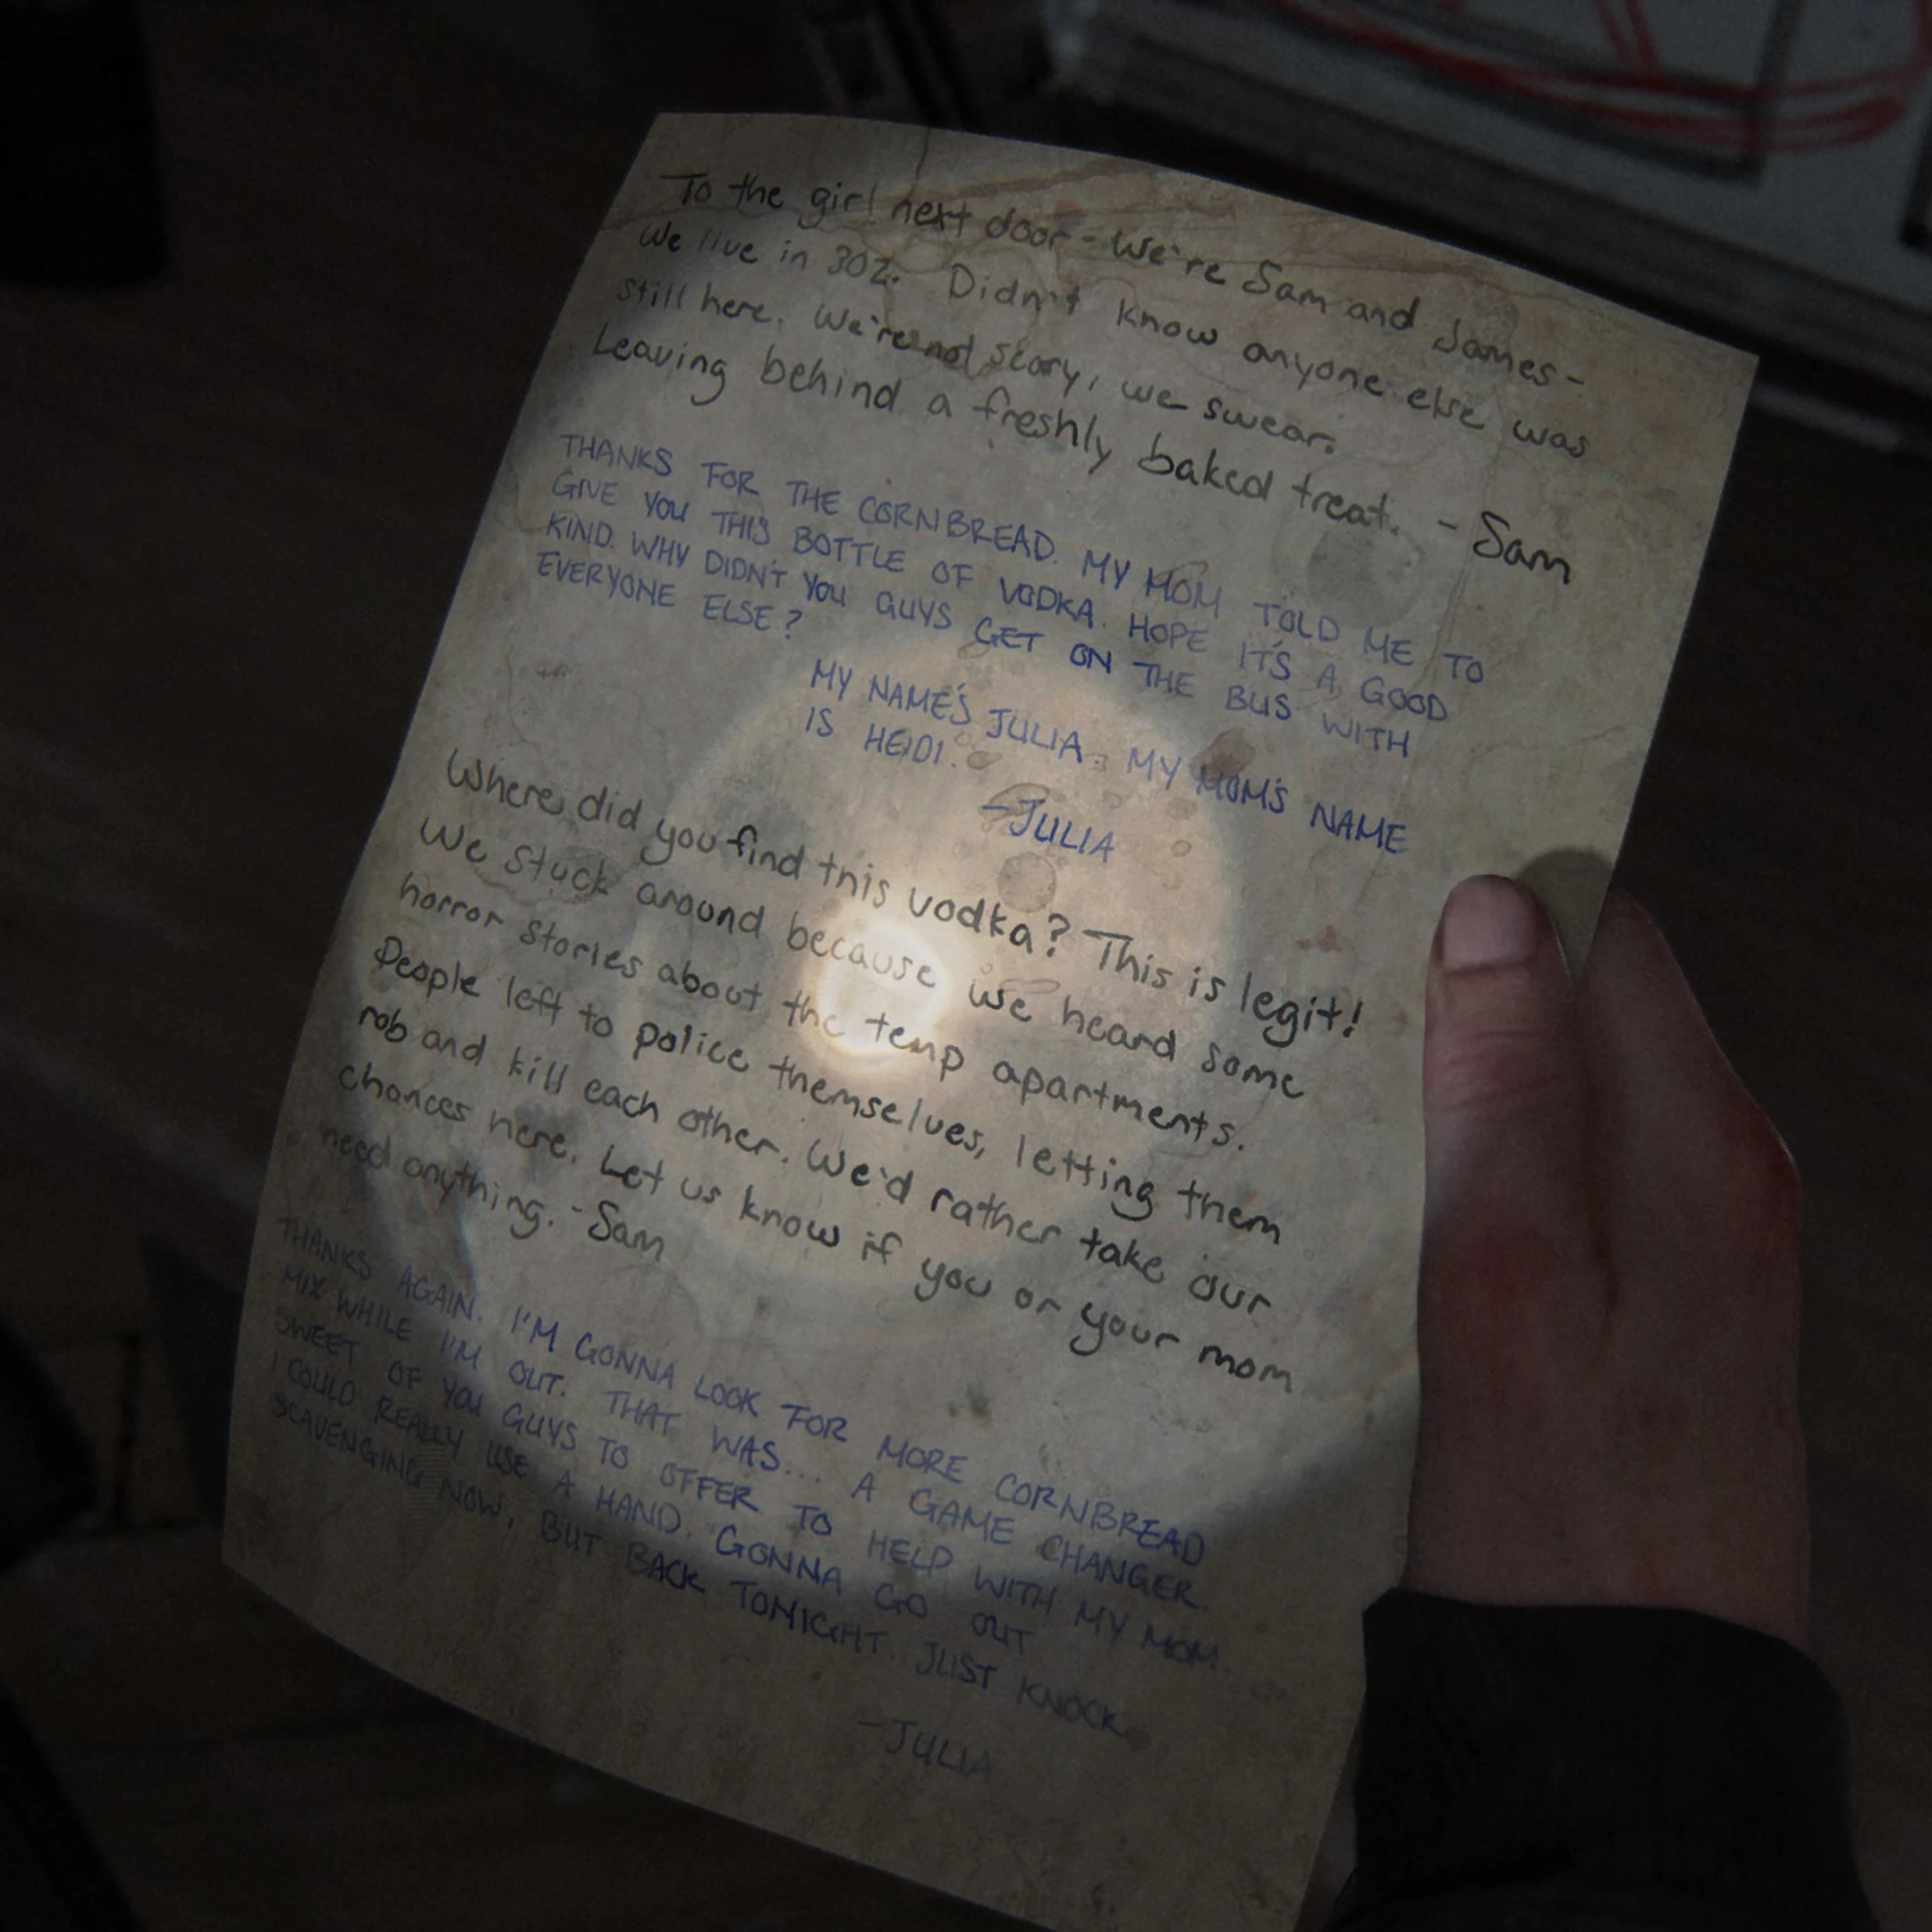 To the girl next door - We're Sam and James -
We live in 302. Didn't know anyone else was
still here. We're not scary, we swear.
Leaving behind a freshly baked treat. - Sam
THANKS FOR THE CORNBREAD. MY MOM TOLD ME TO
GIVE YOU THIS BOTTLE OF VODKA. HOPE IT'S A GOOD
KIND. WHY DIDN'T YOU GUYS GET ON THE BUS WITH
EVERYONE ELSE?
MY NAME'S JULIA. MY MOM'S NAME
IS HEIDI.
-JULIA
Where did you find this vodka? This is legit!
We stuck around because we heard some
horror stories about the temp apartments.
People left to police themselves, letting them
rob and kill each other. We'd rather take our
chances here. Let us know if you or your mom
need anything. -Sam
THANKS AGAIN. I'M GONNA LOOK FOR MORE CORNBREAD
MIX WHILE I'M OUT. THAT WAS... A GAME CHANGER.
SWEET OF YOU GUYS TO OFFER TO HELP WITH MY MOM.
I COULD REALLY USE A HAND. GONNA GO OUT
SCAVENGING NOW, BUT BACK TONIGHT. JUST KNOCK.
-JULIA